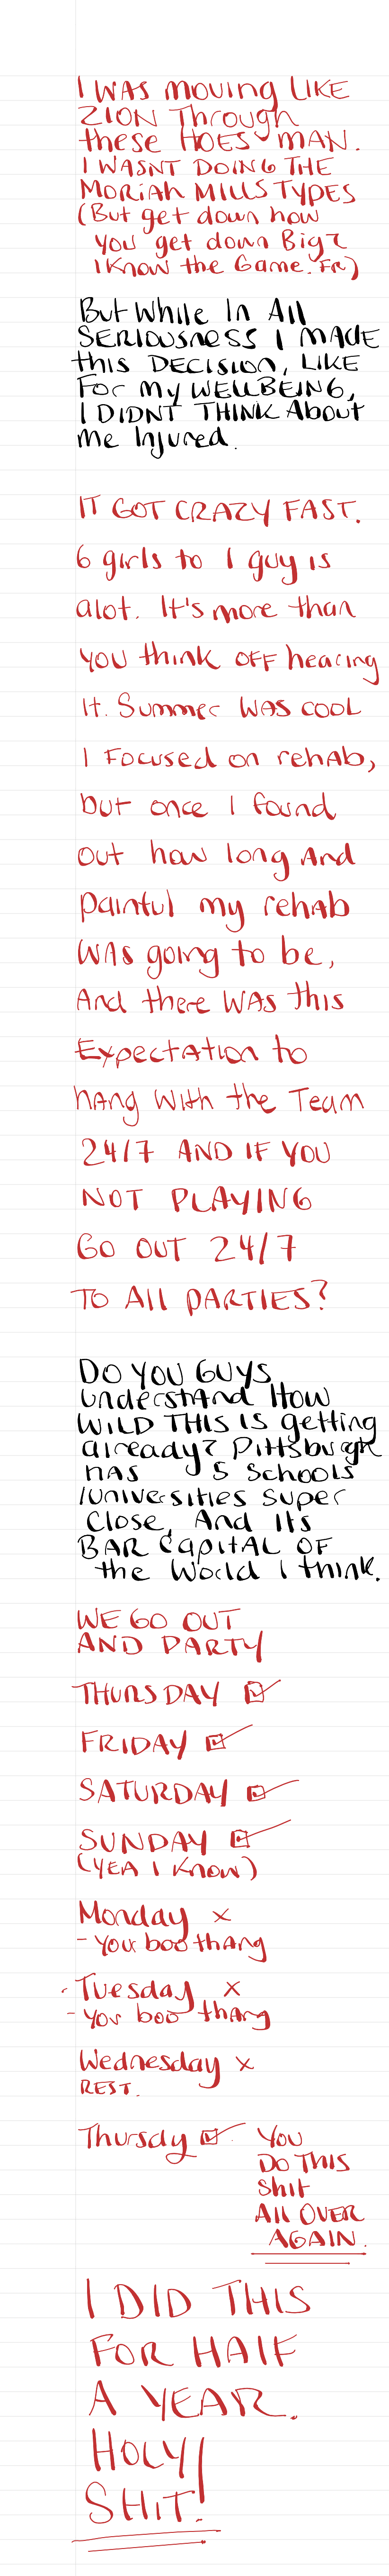 I WAS moving LIKE
ZION Through
these HOES MAN.
I WASNT DOING THE
MORIAH MILLS TYPES
(But get down how
you get down Big?
I Know the Game. FR)
But While In All
SERIOUSNESS I MADE
this DECISION, LIKE
FOR MY WELLBEING,
I DIDNT THINK About
me Injured.
IT GOT CRAZY FAST.
6 girls to 1 guy is
alot. It's more than
you think OFF hearing
It. Summer WAS COOL
I Focused on rehab,
but once I found
out how long And
painful my rehab
WAS going to be,
And there WAS this
Expectation to
hang With the Team
24/7 AND IF YOU
NOT PLAYING
GO OUT 24/7
TO All PARTIES?
DO YOU GUYS
understand How
WILD THIS IS getting
already? Pittsburgh
has 5 Schools
/Universities Super
Close, And Its
BAR Capital OF
the World I think.
WE GO OUT
AND PARTY
THURSDAY ☑
FRIDAY ☑
SATURDAY ☑
SUNDAY ☑
(YEA I Know)
Monday x
- You boo thang
- Tuesday x
- You boo thang
Wednesday x
REST.
Thursday ☑ You
Do This
Shit
All OVER
AGAIN.
I DID THIS
FOR HALF
A YEAR.
HOLY
SHIT!